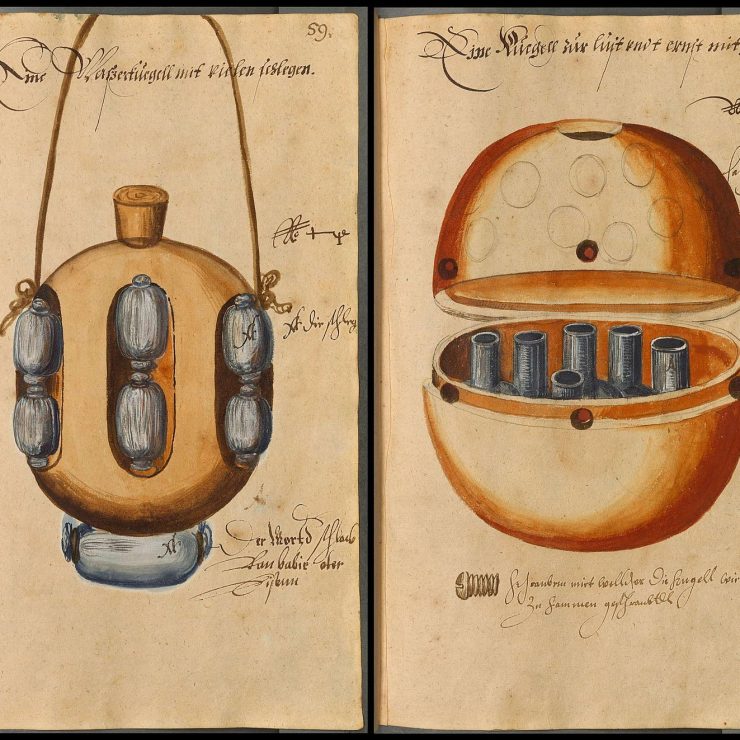 59.
Eine Waßerkuegell mit vielen schlegen.
A die schleg
Der Mordt schlack
von babir oder
Eisenn
Eine Kuegell zur lust undt ernst mit
Schrauben mit wellcher die kugell wir
Zu sammen geschraubtt